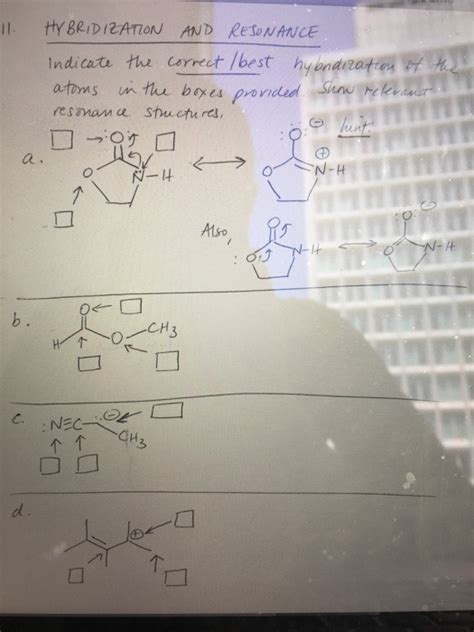 11. HYBRIDIZATION AND RESONANCE
Indicate the correct/best hybridization of the
atoms in the boxes provided. Show relevant
resonance structures.
hint:
a.
O
O
N-H
O ⊖
⊕
O
N-H
Also,
O
O
N-H
O ⊖
O
N-H
b.
O
H
O
CH3
c.
:N≡C
⊖
CH3
d.
⊕